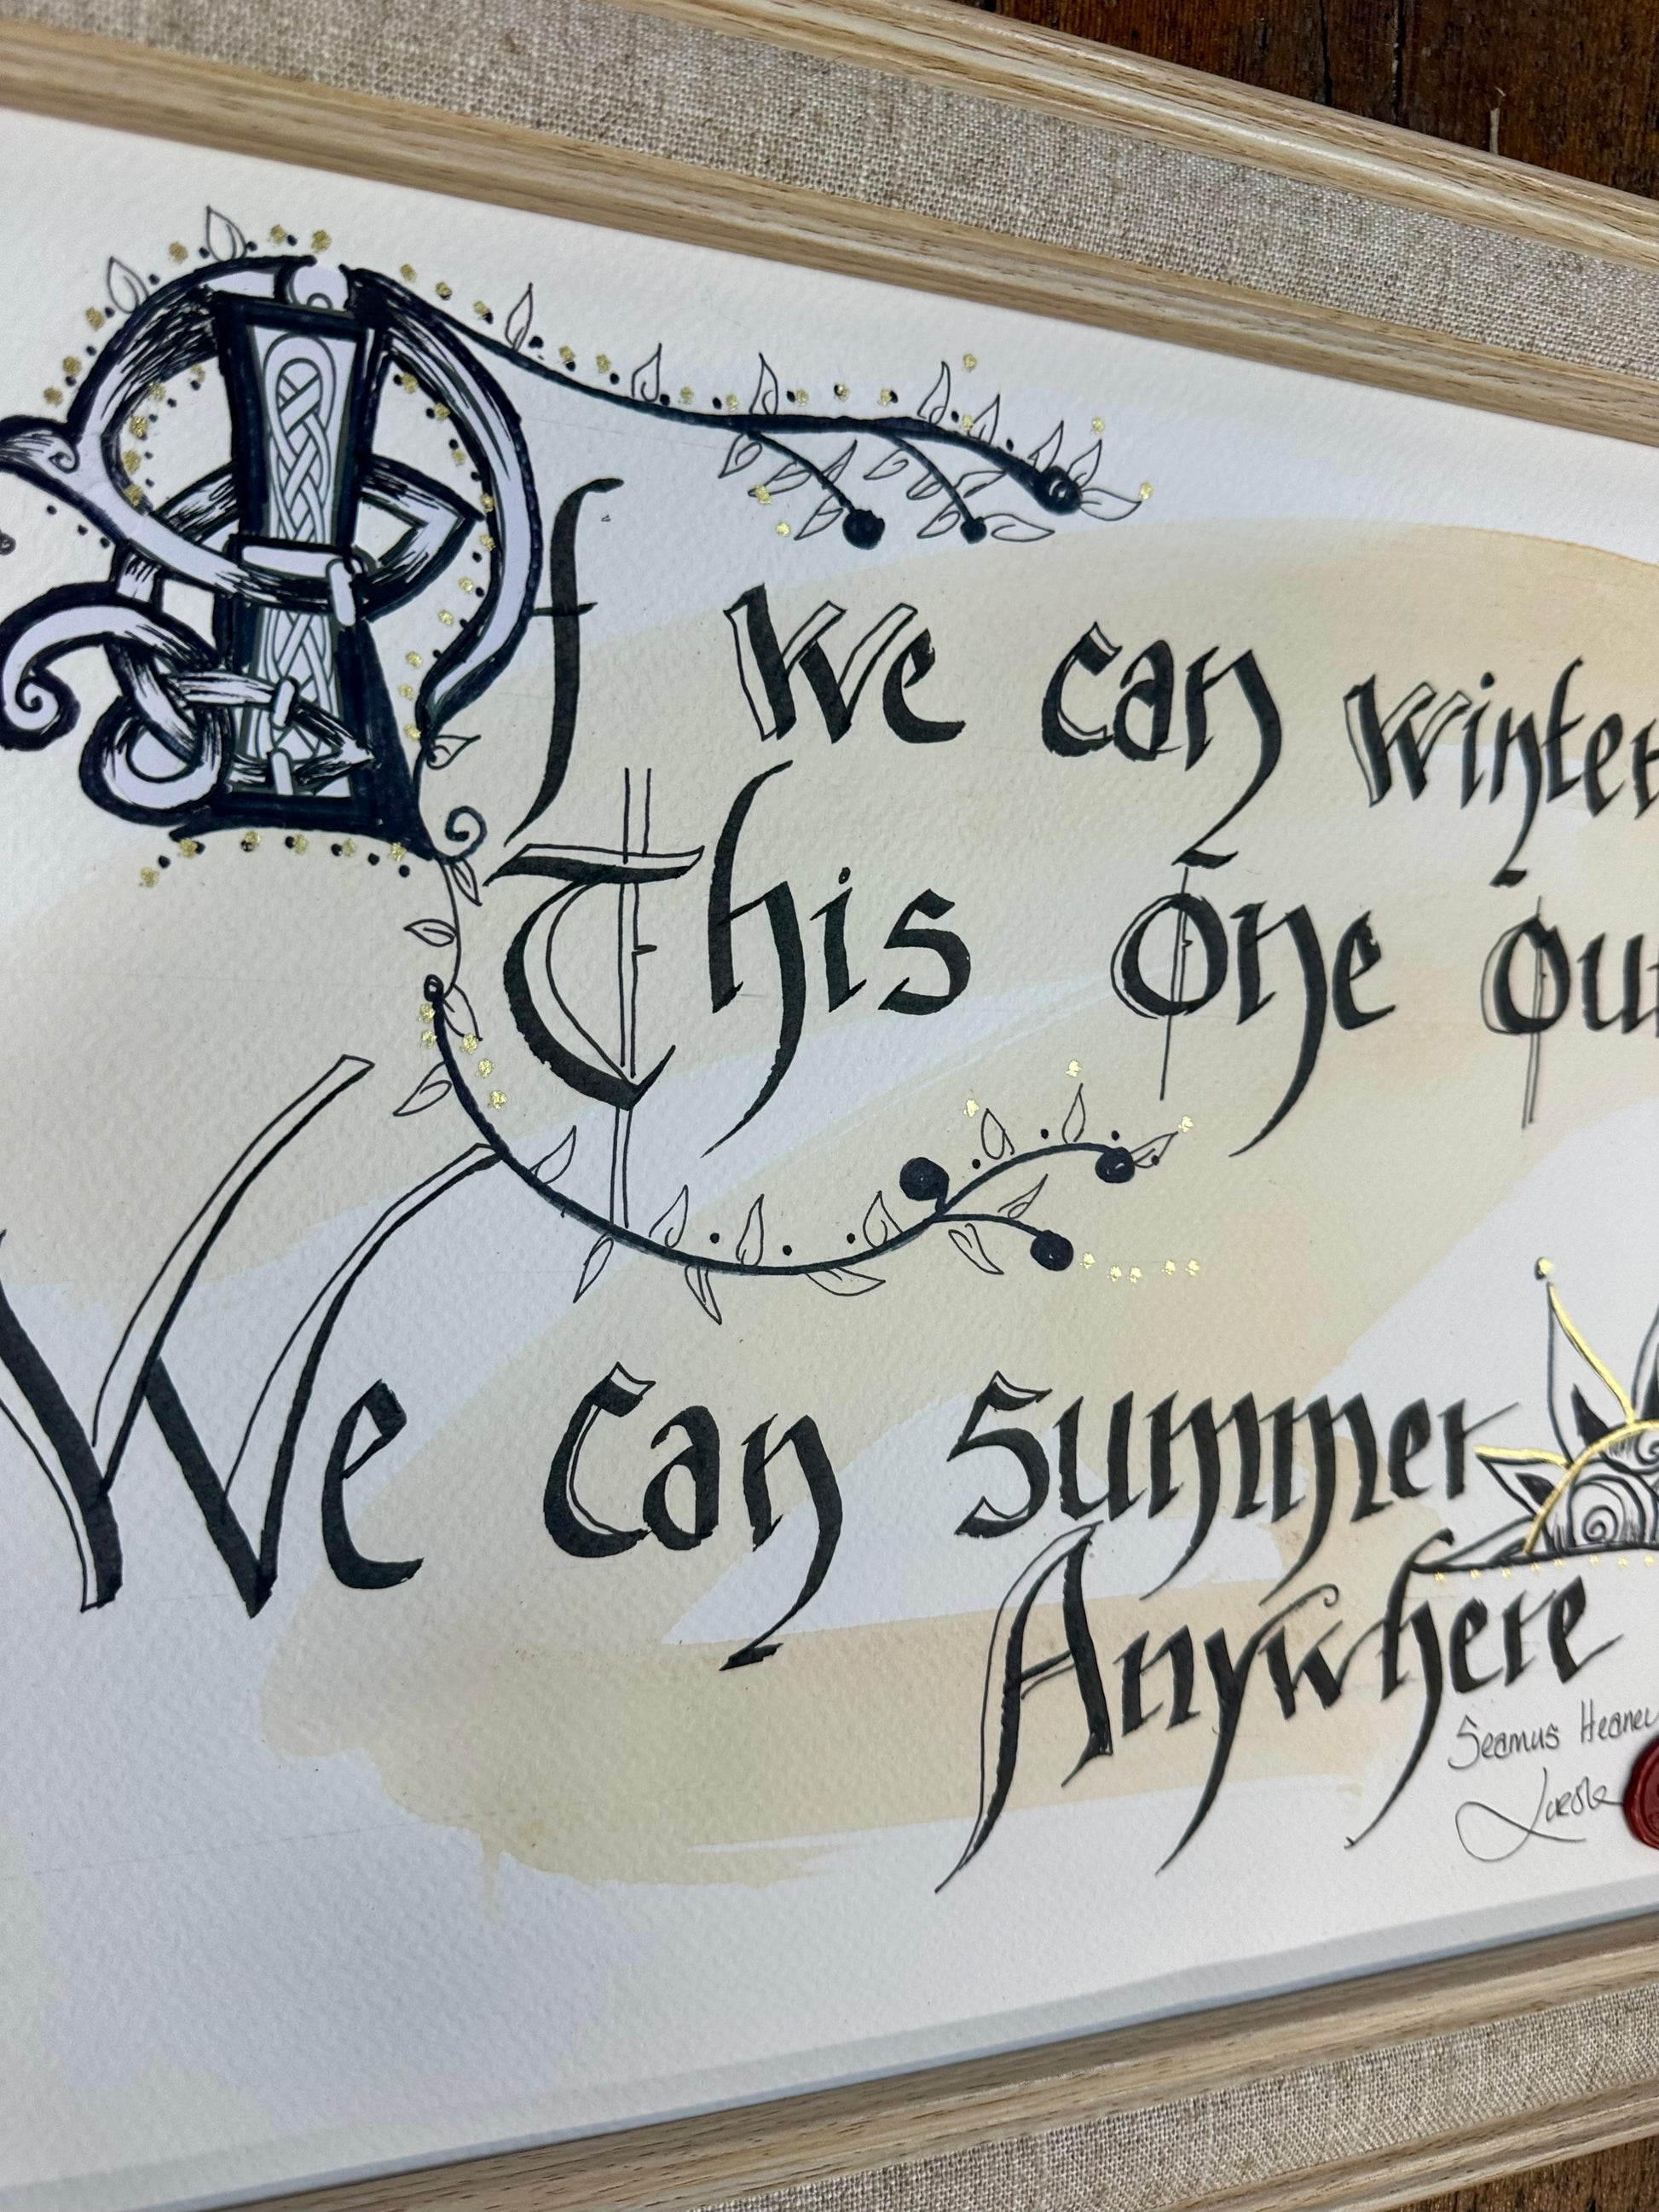 If we can winter
This one out
We can summer
Anywhere
Seamus Heaney